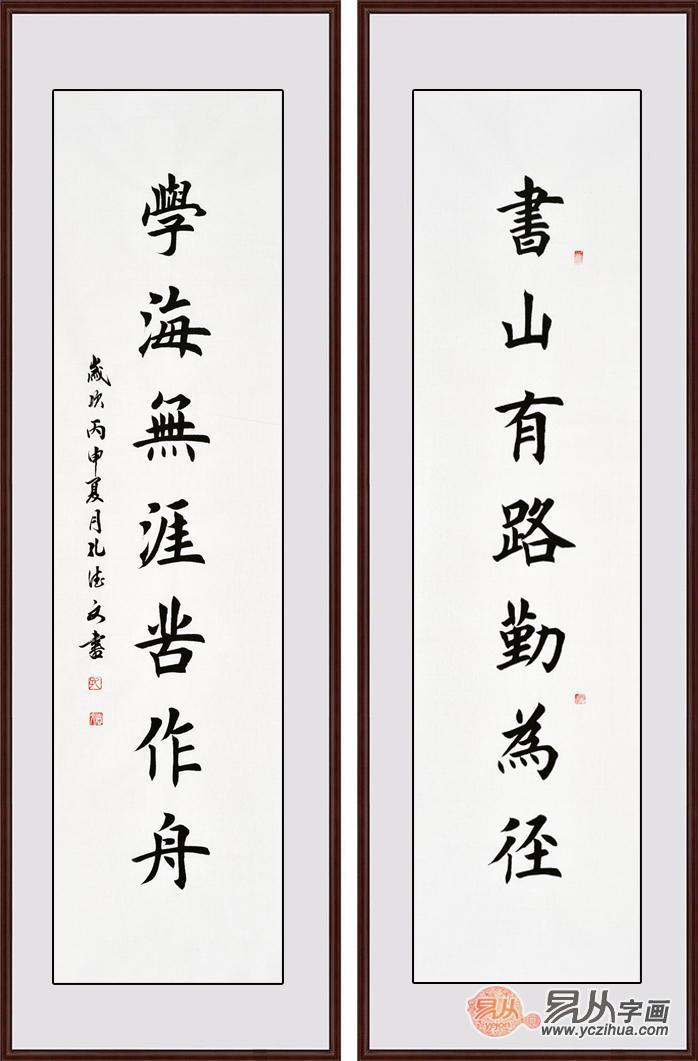 書山有路勤為徑
學海無涯苦作舟
歲次丙申夏月孔德文書
易从字画
yczihua
www.yczihua.com